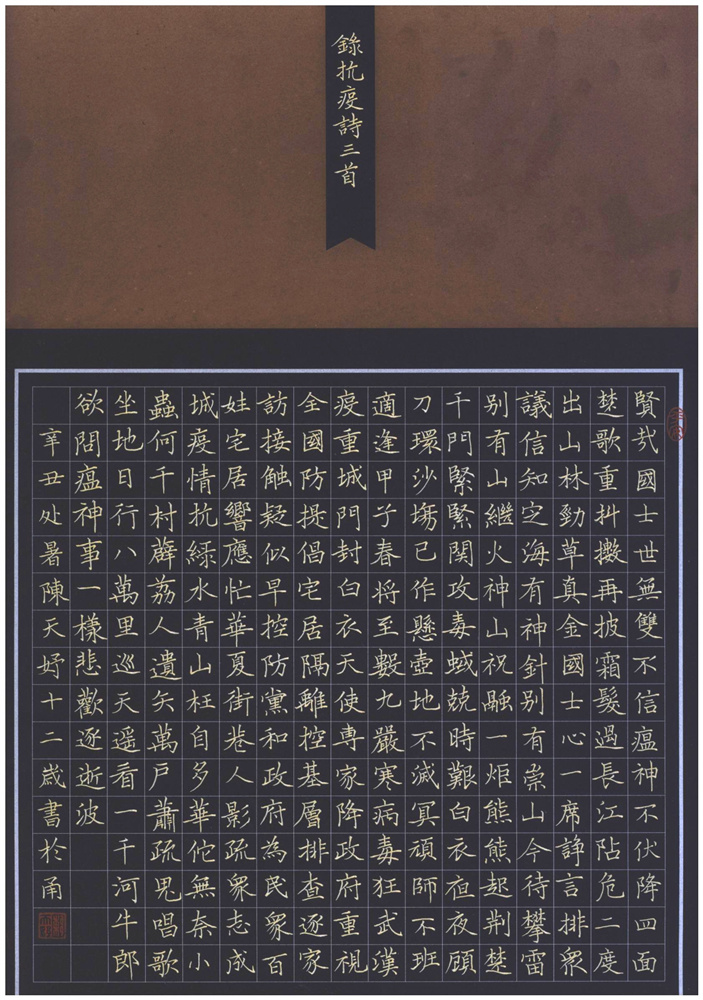 錄抗疫詩三首
賢哉國士世無雙不信瘟神不伏降四面
楚歌重抖擻再披霜髮過長江阽危二度
出山林勁草真金國士心一席諍言排衆
議信知定海有神針别有崇山今待攀雷
别有山繼火神山祝融一炬熊熊起荆楚
千門緊緊関攻毒蜮兢時艱白衣亱夜顧
刀環沙塲已作懸壺地不滅冥頑師不班
適逢甲子春将至數九嚴寒病毒狂武漢
疫重城門封白衣天使專家降政府重視
全國防提倡宅居隔離控基層排查逐家
訪接触疑似早控防黨和政府為民衆百
姓宅居響應忙華夏街巷人影疏衆志成
城疫情抗緑水青山枉自多華佗無奈小
蟲何千村薜荔人遺矢萬户蕭疏鬼唱歌
坐地日行八萬里巡天遥看一千河牛郎
欲問瘟神事一樣悲歡逐逝波
辛丑处暑陳天妤十二歲書於甬